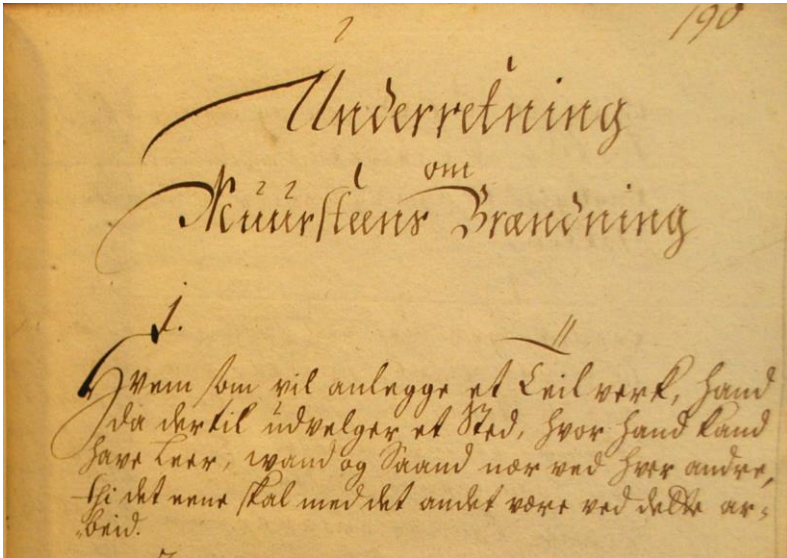 190
Underretning
om
Muursteens Brændning
1.
Hvem som vil anlegge et Teilverk, hand
da dertil udvelger et Sted, hvor hand kand
have Leer, wand og Saand nær ved hver andre,
thi det eene skal med det andet være ved dette ar-
beid.